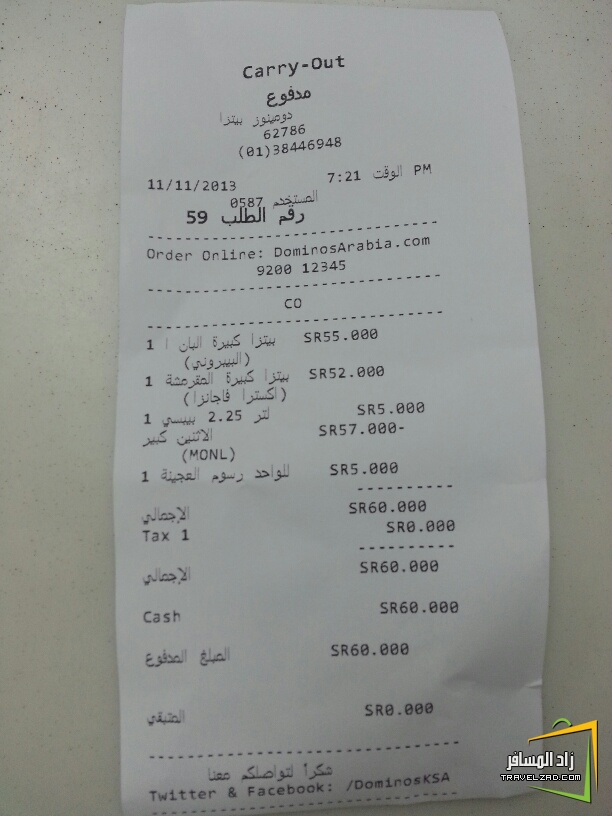 Carry-Out
مدفوع
دومينوز بيتزا
62786
(01)38446948
11/11/2013 الوقت 7:21 PM
المستخدم 0587
رقم الطلب 59
Order Online: DominosArabia.com
9200 12345
CO
1 بيتزا كبيرة البان ا SR55.000
(البيبروني)
1 بيتزا كبيرة المقرمشة SR52.000
(اكسترا فاجانزا)
1 لتر 2.25 بيبسي SR5.000
الاثنين كبير SR57.000-
(MONL)
1 للواحد رسوم العجينة SR5.000
الإجمالي SR60.000
Tax 1 SR0.000
الإجمالي SR60.000
Cash SR60.000
المبلغ المدفوع SR60.000
المتبقي SR0.000
شكرأ لتواصلكم معنا
Twitter & Facebook: /DominosKSA
زاد المسافر
TRAVELZAD.COM